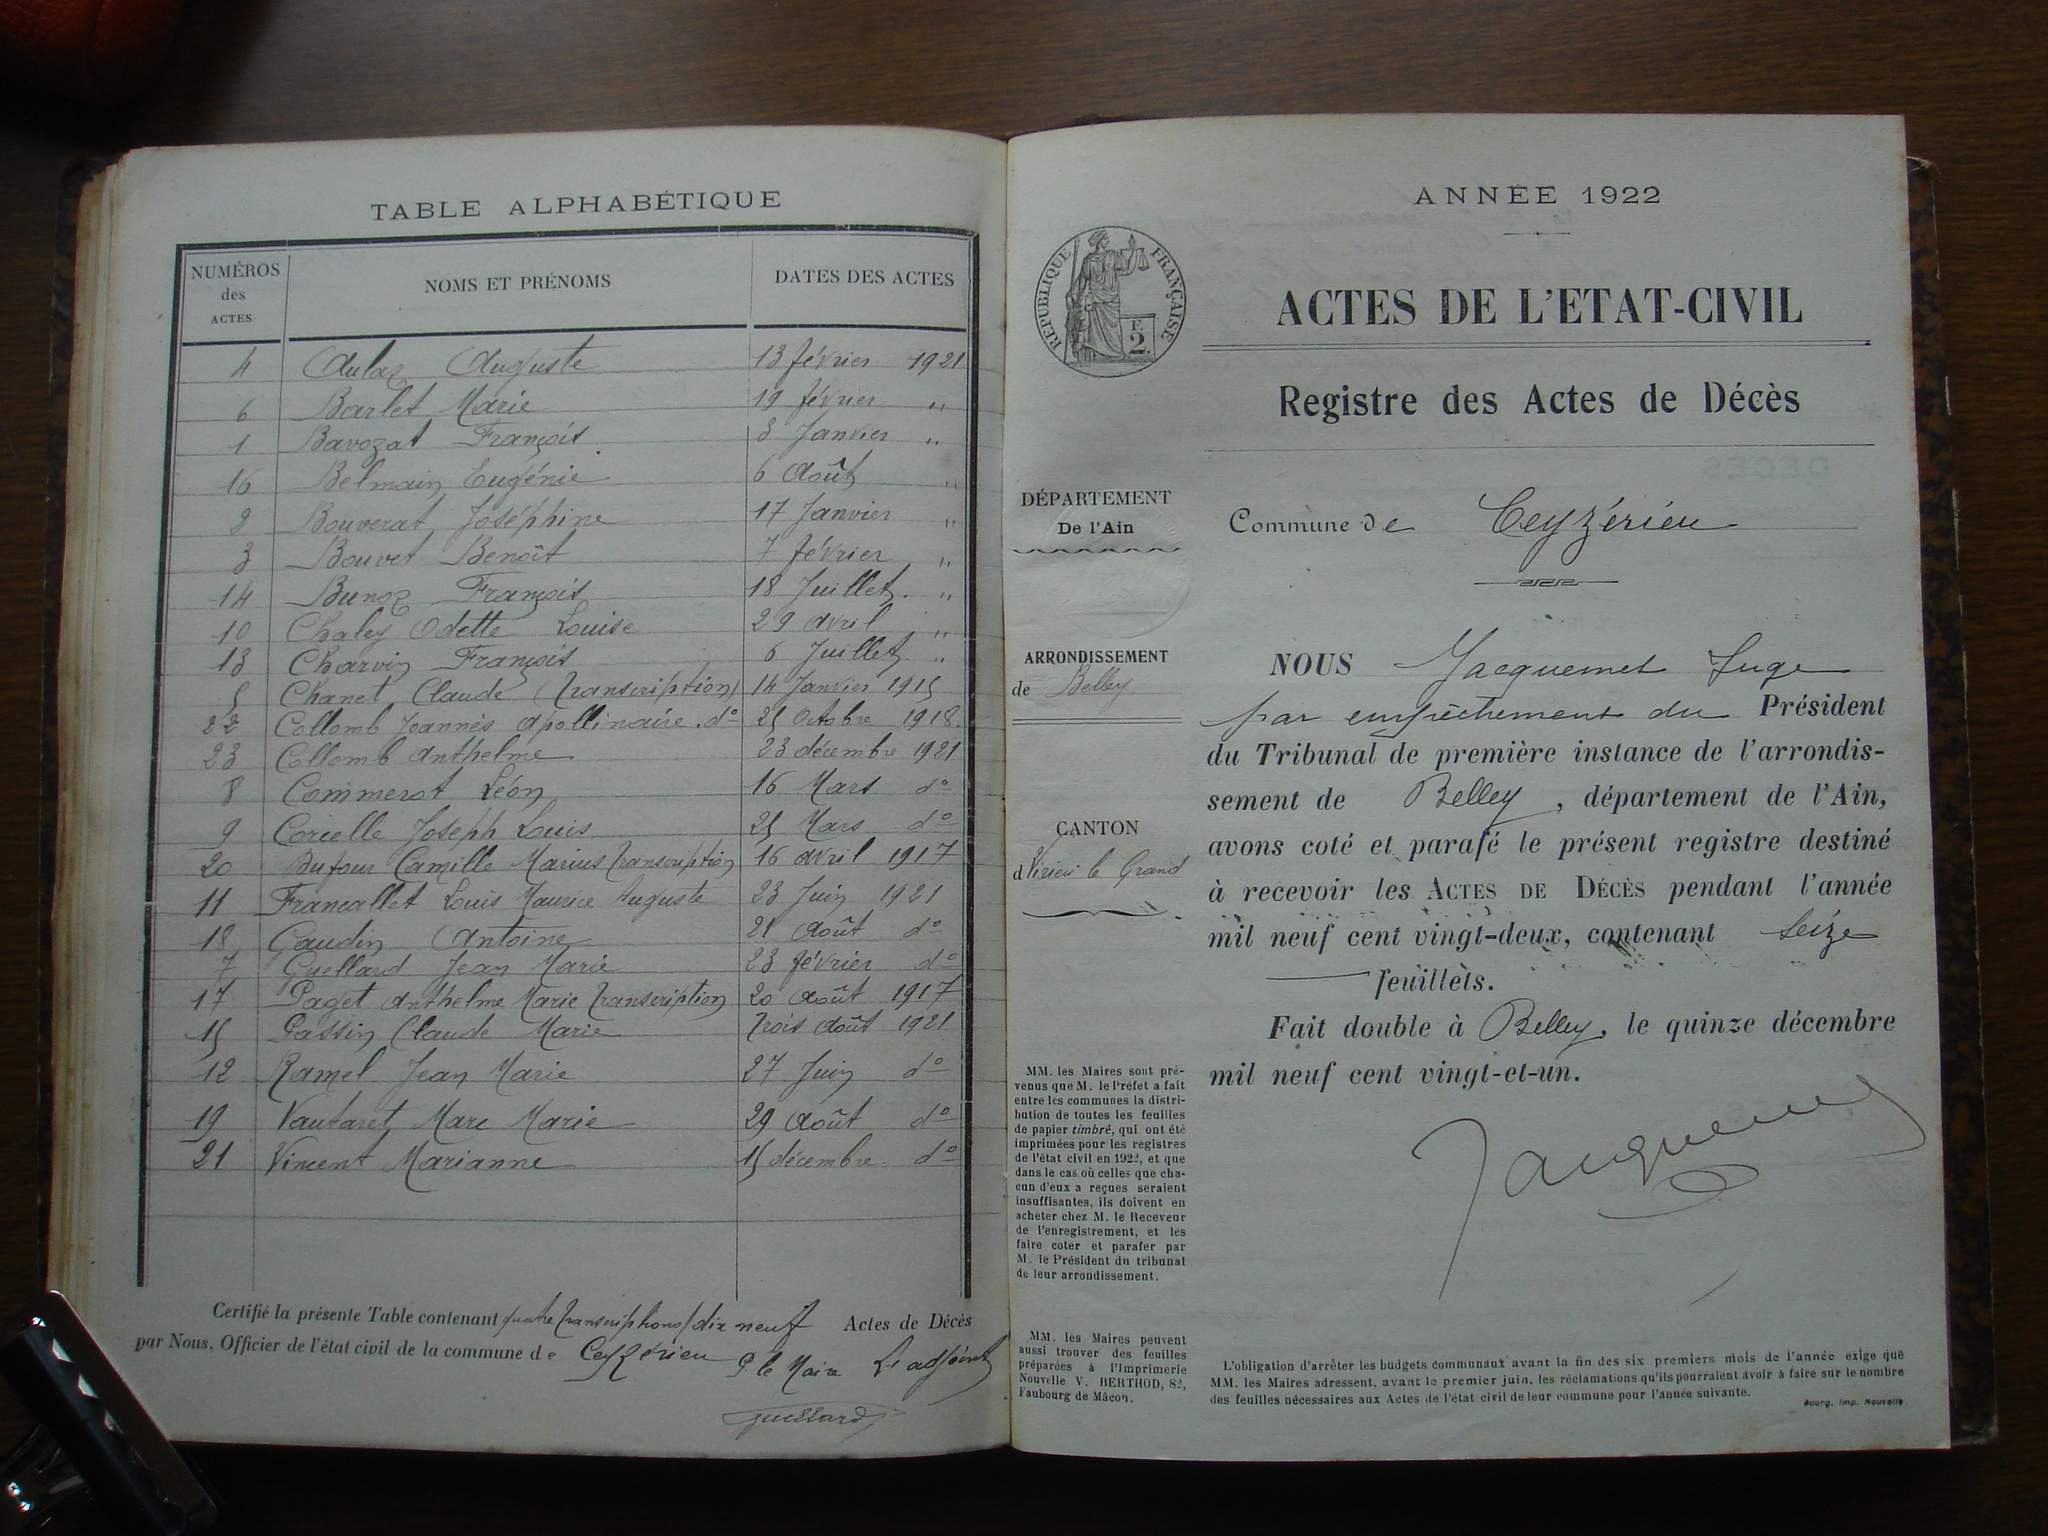 TABLE ALPHABÉTIQUE
NUMÉROS des ACTES NOMS ET PRÉNOMS DATES DES ACTES
4 Aulaz Auguste 13 février 1921
6 Barlet Marie 19 février "
1 Bavozat François 3 Janvier "
16 Belmain Eugénie 6 Août "
2 Bouverat Joséphine 17 Janvier "
3 Bouvet Benoît 7 février "
14 Bunoz François 18 Juillet "
10 Chaley Odette Louise 29 avril "
13 Charvin François 6 Juillet "
5 Chanet Claude (Transcription) 14 Janvier 1915
22 Collomb Joannès Apollinaire. do 25 Octobre 1918
23 Collomb Anthelme 23 décembre 1921
8 Commerot Léon 16 Mars do
9 Corcelle Joseph Louis 25 Mars do
20 Dufour Camille Marius Transcription 16 avril 1917
11 Francallet Louis Maurice Auguste 23 Juin 1921
18 Gaudin Antoine 21 Août do
7 Guellard Jean Marie 23 février do
17 Paget Anthelme Marie Transcription 20 Août 1917
15 Passin Claude Marie Trois Août 1921
12 Ramel Jean Marie 27 Juin do
19 Vautaret Marc Marie 29 Août do
21 Vincent Marianne 15 décembre do
Certifié la présente Table contenant quatre transcriptions/dix neuf Actes de Décès
par Nous, Officier de l'état civil de la commune de Ceyzérieu P. le Maire L'adjoint
Guillard
ANNÉE 1922
RÉPUBLIQUE FRANÇAISE
F. 2.
ACTES DE L'ETAT-CIVIL
Registre des Actes de Décès
DÉPARTEMENT
De l'Ain
Commune de Ceyzérieu
ARRONDISSEMENT
de Belley
CANTON
d Virieu le Grand
NOUS Jacquemet Juge
par empêchement du Président
du Tribunal de première instance de l'arrondis-
sement de Belley, département de l'Ain,
avons coté et parafé le présent registre destiné
à recevoir les ACTES DE DÉCÈS pendant l'année
mil neuf cent vingt-deux, contenant seize
feuillets.
Fait double à Belley, le quinze décembre
mil neuf cent vingt-et-un.
Jacquemet
MM. les Maires sont pré-
venus que M. le Préfet a fait
entre les communes la distri-
bution de toutes les feuilles
de papier timbré, qui ont été
imprimées pour les registres
de l'état civil en 1922, et que
dans le cas où celles que cha-
cun d'eux a reçues seraient
insuffisantes, ils doivent en
acheter chez M. le Receveur
de l'enregistrement, et les
faire coter et parafer par
M. le Président du tribunal
de leur arrondissement.
MM. les Maires peuvent
aussi trouver des feuilles
préparées à l'Imprimerie
Nouvelle V. BERTHOD, 82,
Faubourg de Mâcon.
L'obligation d'arrêter les budgets communaux avant la fin des six premiers mois de l'année exige que
MM. les Maires adressent, avant le premier juin, les réclamations qu'ils pourraient avoir à faire sur le nombre
des feuilles nécessaires aux Actes de l'état civil de leur commune pour l'année suivante.
Bourg. Imp. Nouvelle